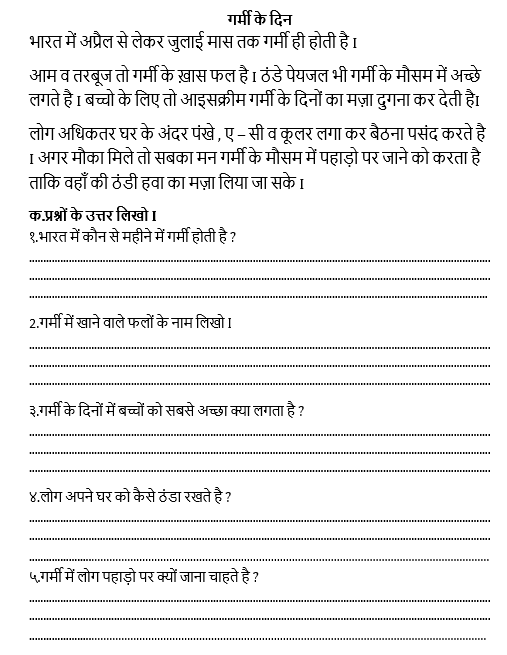 गर्मी के दिन
भारत में अप्रैल से लेकर जुलाई मास तक गर्मी ही होती है I
आम व तरबूज तो गर्मी के ख़ास फल है I ठंडे पेयजल भी गर्मी के मौसम में अच्छे
लगते है I बच्चो के लिए तो आइसक्रीम गर्मी के दिनों का मज़ा दुगना कर देती हैI
लोग अधिकतर घर के अंदर पंखे , ए – सी व कूलर लगा कर बैठना पसंद करते है
I अगर मौका मिले तो सबका मन गर्मी के मौसम में पहाड़ो पर जाने को करता है
ताकि वहाँ की ठंडी हवा का मज़ा लिया जा सके I
क.प्रश्नों के उत्तर लिखो I
१.भारत में कौन से महीने में गर्मी होती है ?
2.गर्मी में खाने वाले फलों के नाम लिखो I
३.गर्मी के दिनों में बच्चों को सबसे अच्छा क्या लगता है ?
४.लोग अपने घर को कैसे ठंडा रखते है ?
५.गर्मी में लोग पहाड़ो पर क्यों जाना चाहते है ?